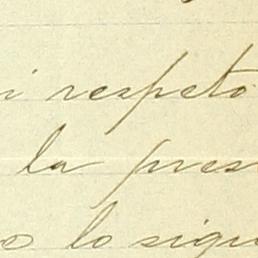 i respeto
la pres
o lo sigu